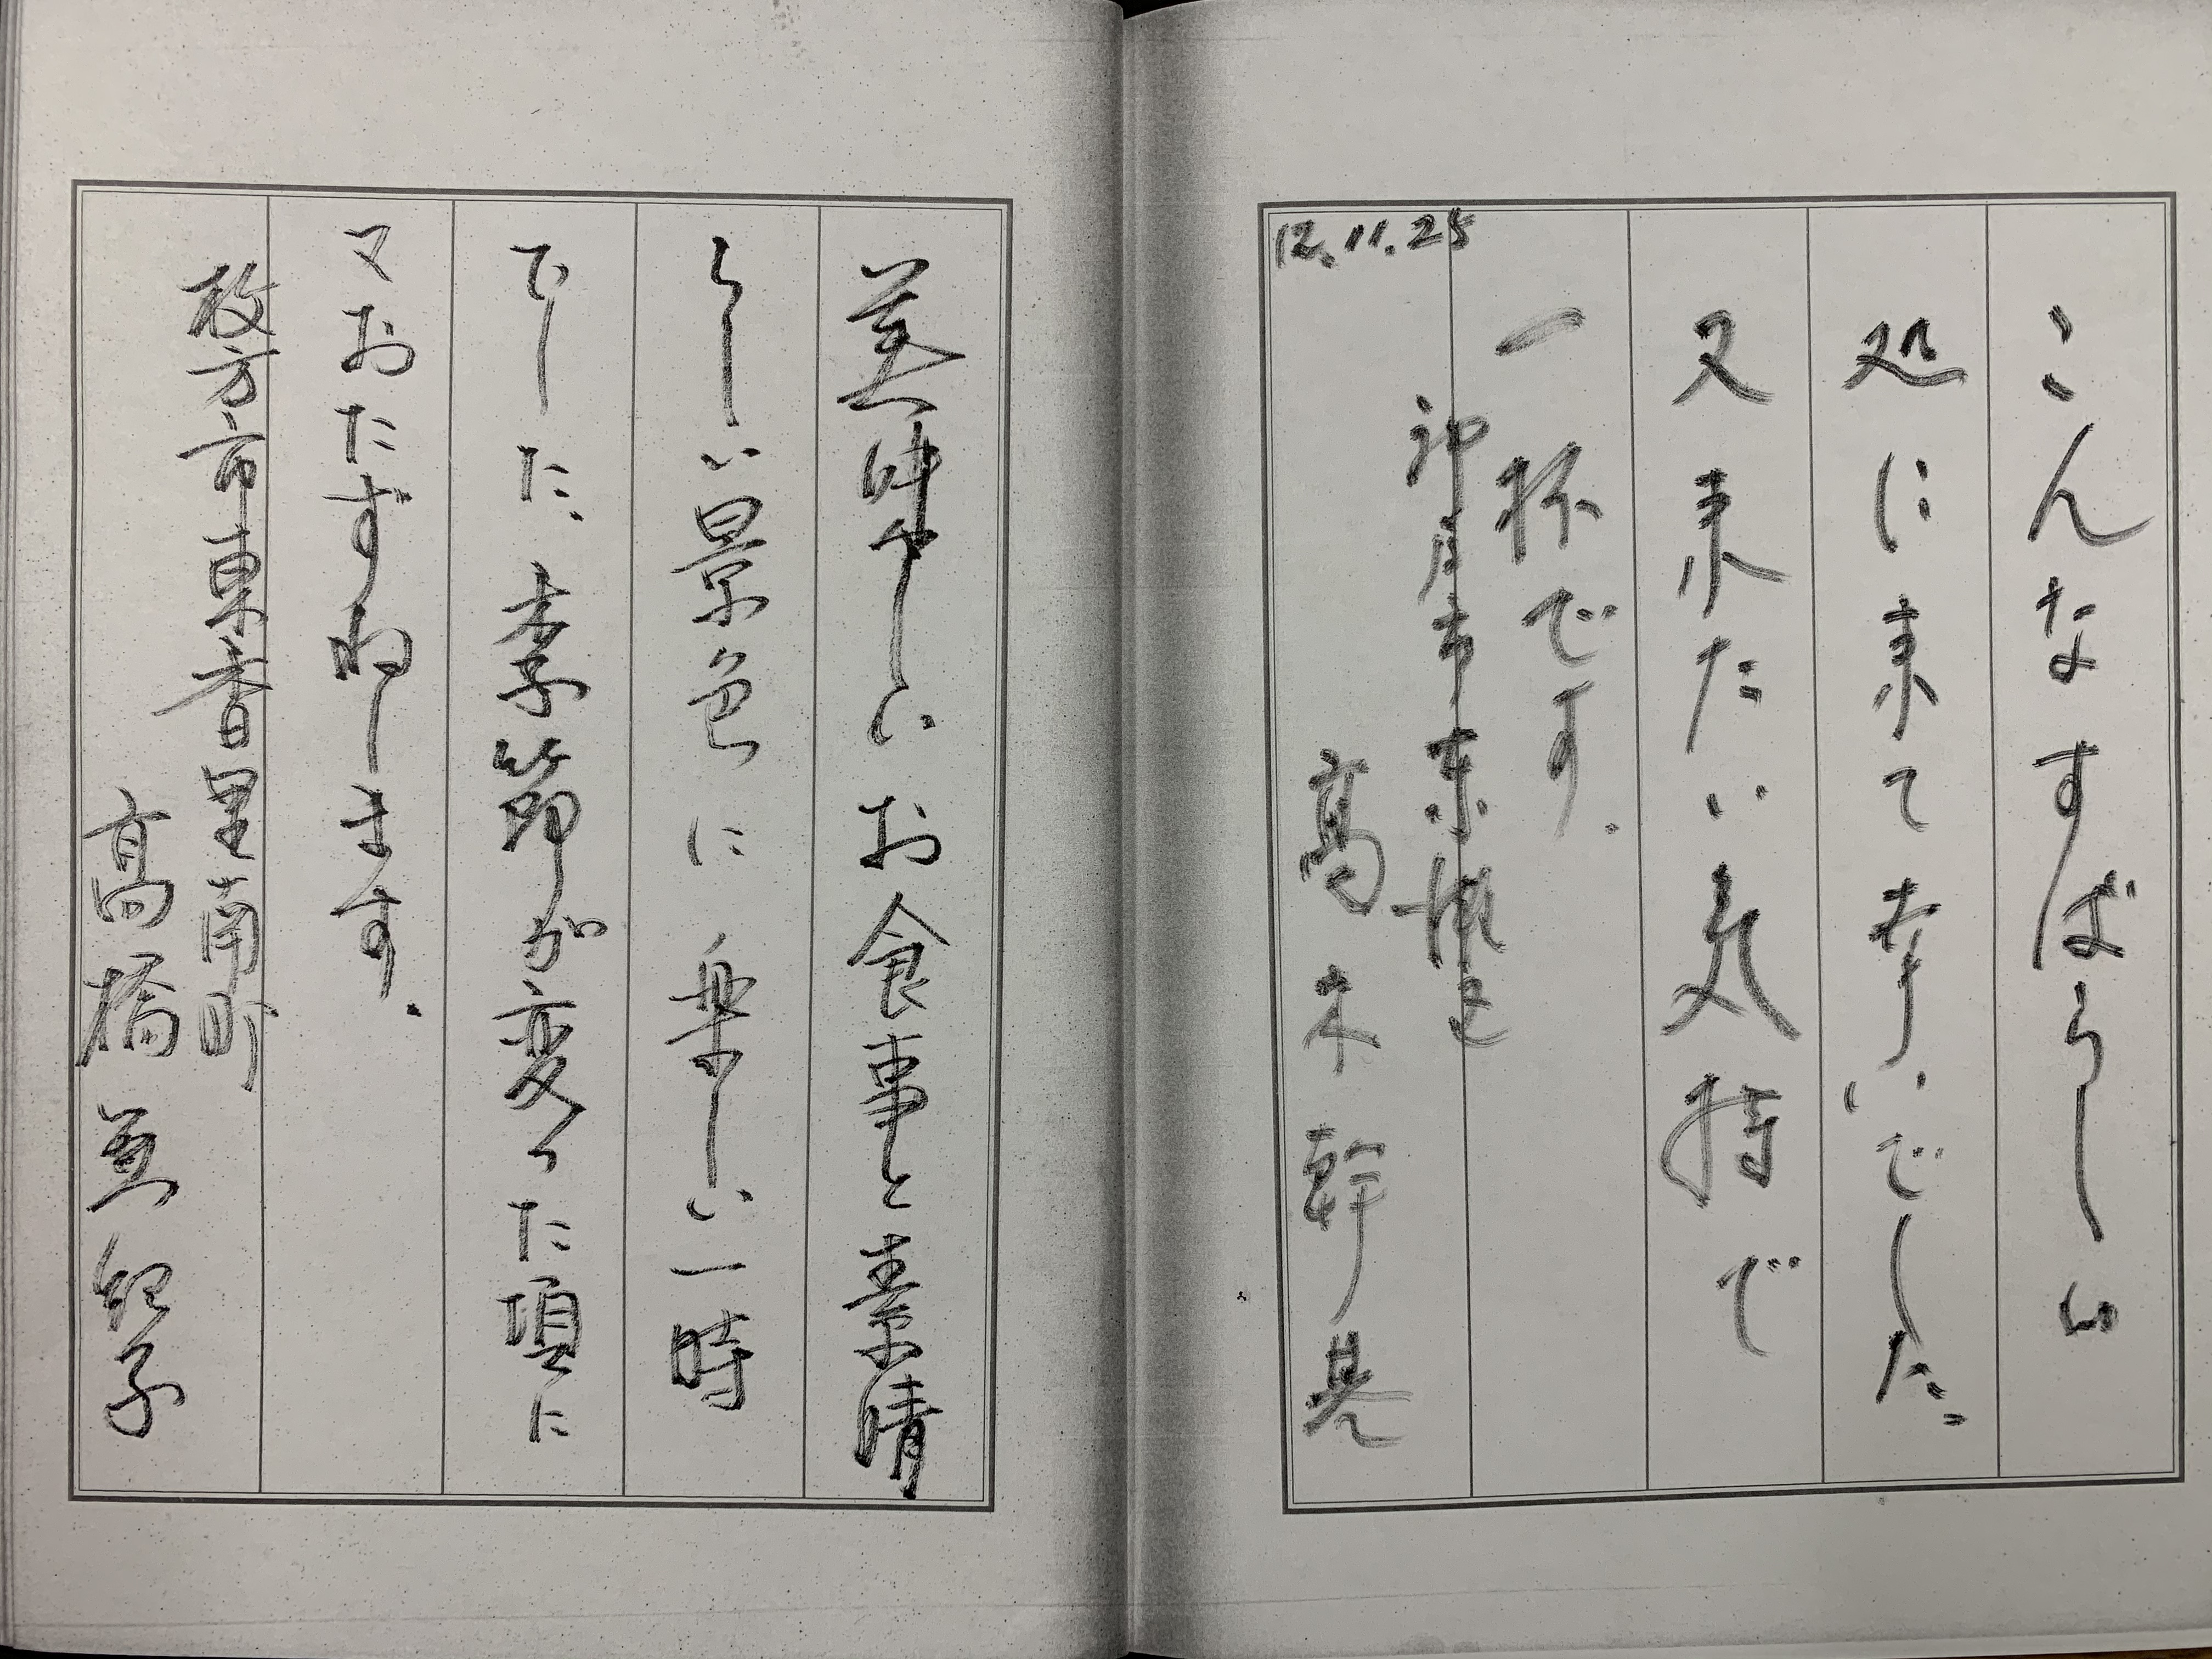 こんなすばらしい
処に来て幸いでした
又来たい気持で
一杯です。
神戸市東灘区
高木幹晃
12.11.25
美味しいお食事と素晴
らしい景色に楽しい一時
でした 季節が変った頃に
又おたずねします。
枚方市東香里南町
高橋美紀子